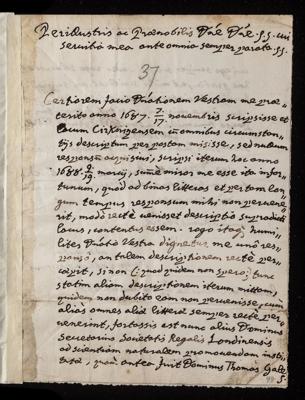 Perillustris ac Prænobilis Dñe Dñe ss. cui
servitia mea ante omnia semper parata. ss.
37
Certiorem facio Dñationem Vestram me præ-
terito anno 1687. 7/17. novembris scripsisse et
lacum Cirknizensem cū omnibus circumstan-
tijs descriptum per postam misisse, sed nullum
responsū acquisivi, scripsi iterum hoc anno
1688. 9/19. martij, sum̃e miror me esse ita infor-
tunum, quod ad binas litteras et per tam lon-
gum tempus responsum mihi non pervene-
rit, modo recte venisset descriptio supradicti
lacus, contentus essem. rogo itaq, humi-
liter Dñatio Vestra dignetur me uno res-
ponso, an talem descriptionem recte per-
cæpit, si non (: quod quidem non spero:) tunc
statim aliam descriptionem iterum mittam,
quidem non dubito eam non pervenisse, cum
alias omnes aliæ litteræ semper recte per-
venerint, fortassis est nunc alius Dominus
Secretarius Societatis Regalis Londinensis
ad scientiam naturalem promovendam insti-
tuta, quia antea fuit Dominus Thomas Gale
S.